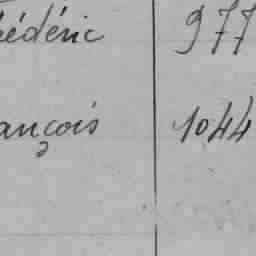 édéric 977
ançois 1044